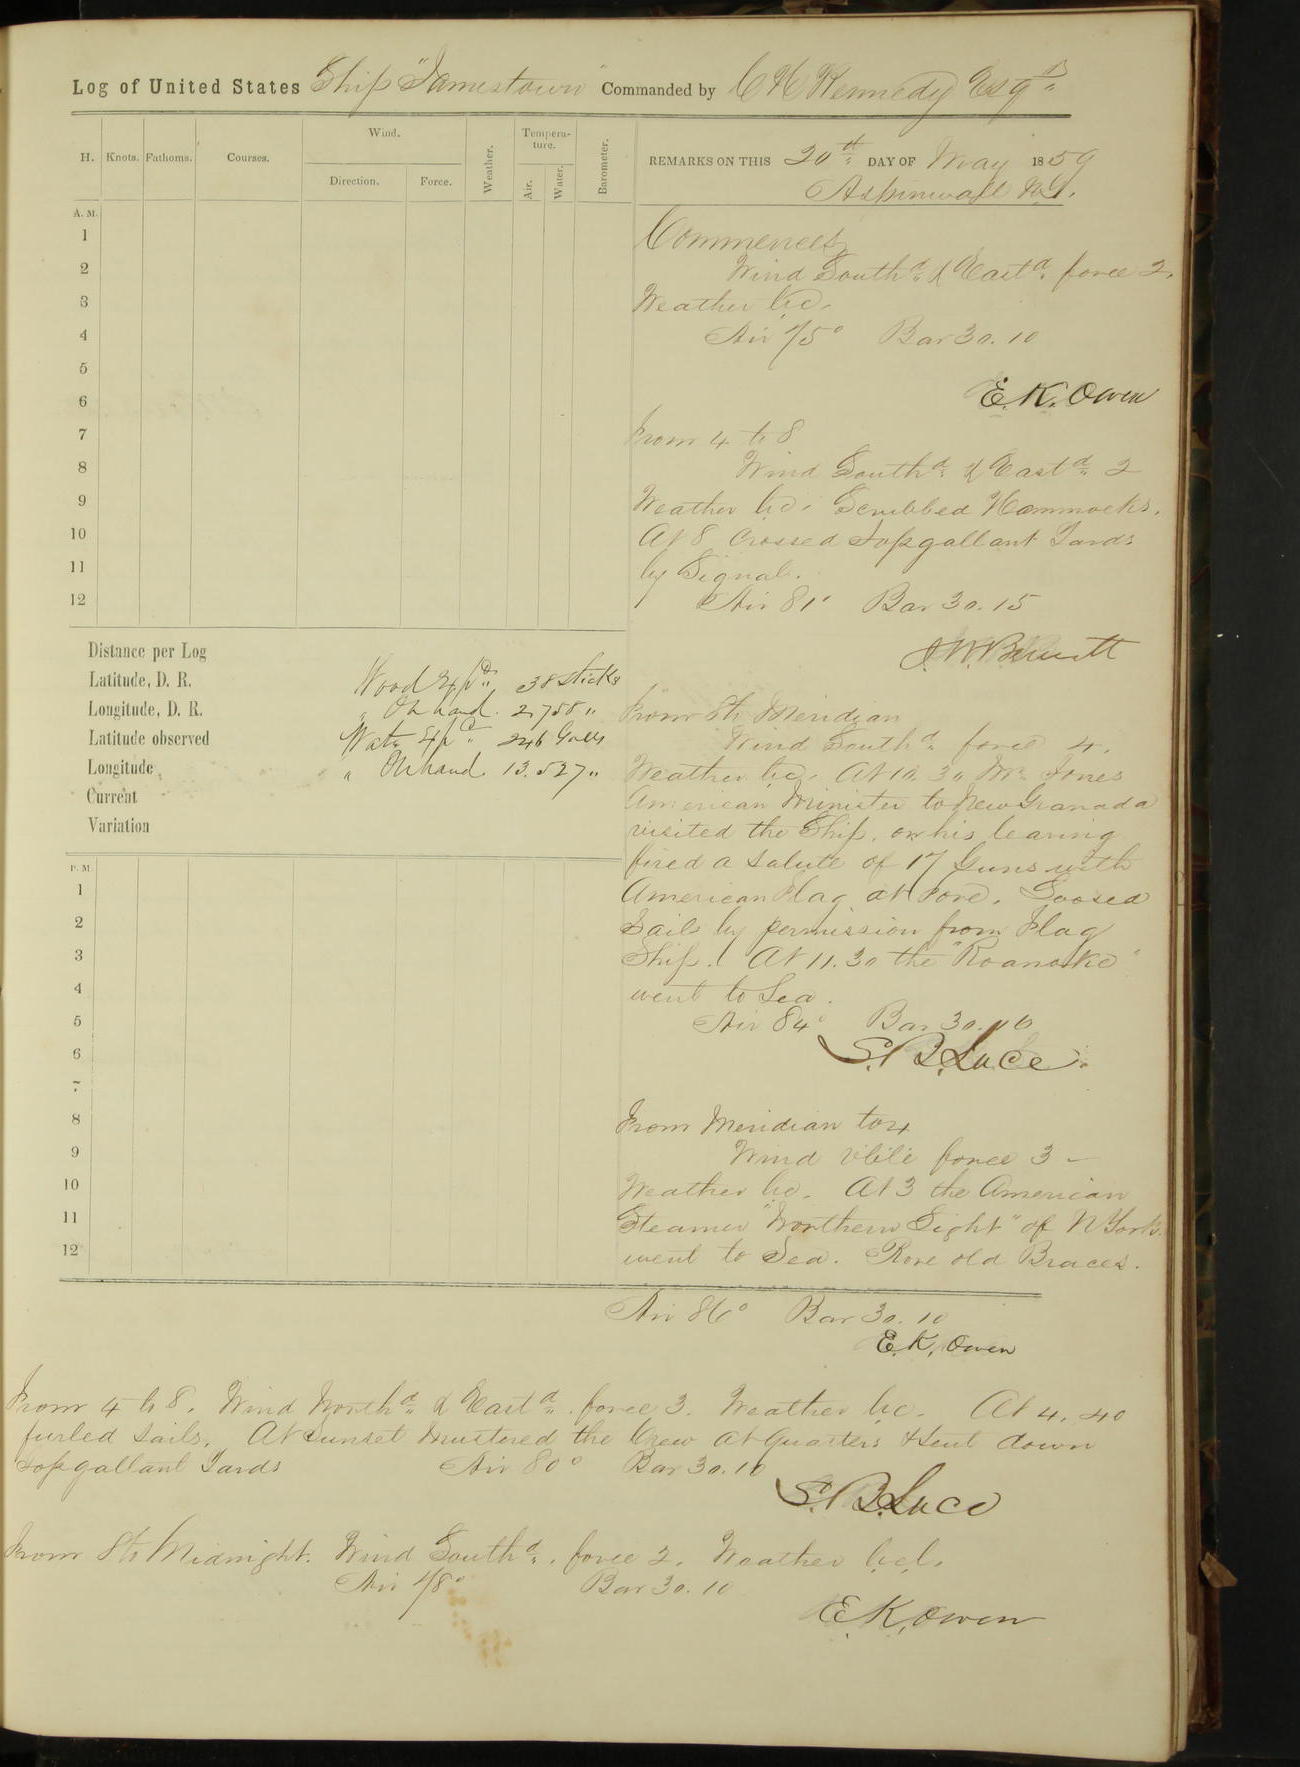 Log of United States Ship "Jamestown" Commanded by C H Kennedy Esqr.
H. Knots. Fathoms. Courses. Wind. Direction. Force. Weather. Tempera-ture. Air. Water. Barometer.
REMARKS ON THIS 20th DAY OF May 1859
Aspinwall N.G.
A. M.
1
2
3
4
5
6
7
8
9
10
11
12
Commences
Wind Southd & Eastd force 2.
Weather b.c.
Air 75° Bar 30.10
E. K. Owen
From 4 to 8
Wind Southd & Eastd 2
Weather b.c. Scrubbed Hammocks.
At 8 Crossed Topgallant Yards
by Signal.
Air 81° Bar 30.15
From 8 to Meridian
Wind Southd force 4.
Weather b.c. At 10.30 Mr. Jones
American Minister to New Granada
visited the Ship. on his leaving
fired a Salute of 17 Guns with
American Flag at Fore. Loosed
Sails by permission from Flag
Ship. At 11.30 the "Roanoke"
went to Sea.
Air 84° Bar 30.
S. B. Luce.
Distance per Log
Latitude, D. R.
Longitude, D. R.
Latitude observed
Longitude
Current
Variation
Wood Expd 38 Sticks
" On hand. 2,758 "
Watr Expd 246 Galls
" On hand. 13.527 "
P. M.
1
2
3
4
5
6
7
8
9
10
11
12
From Meridian to 4
Wind vble force 3 –
Weather b.c. At 3 the American
Steamer "Northern Light" of N York
went to Sea. Rove old Braces.
Air 86° Bar 30.10
E. K. Owen
From 4 to 8. Wind Northd & Eastd. force 3. Weather b.c. At 4.40
furled Sails. At Sunset Mustered the Crew at Quarters & Sent down
Topgallant Yards Air 80° Bar 30.10
S. B. Luce
From 8 to Midnight. Wind Southd. force 2. Weather b.c.l.
Air 78° Bar 30.10
E. K. Owen